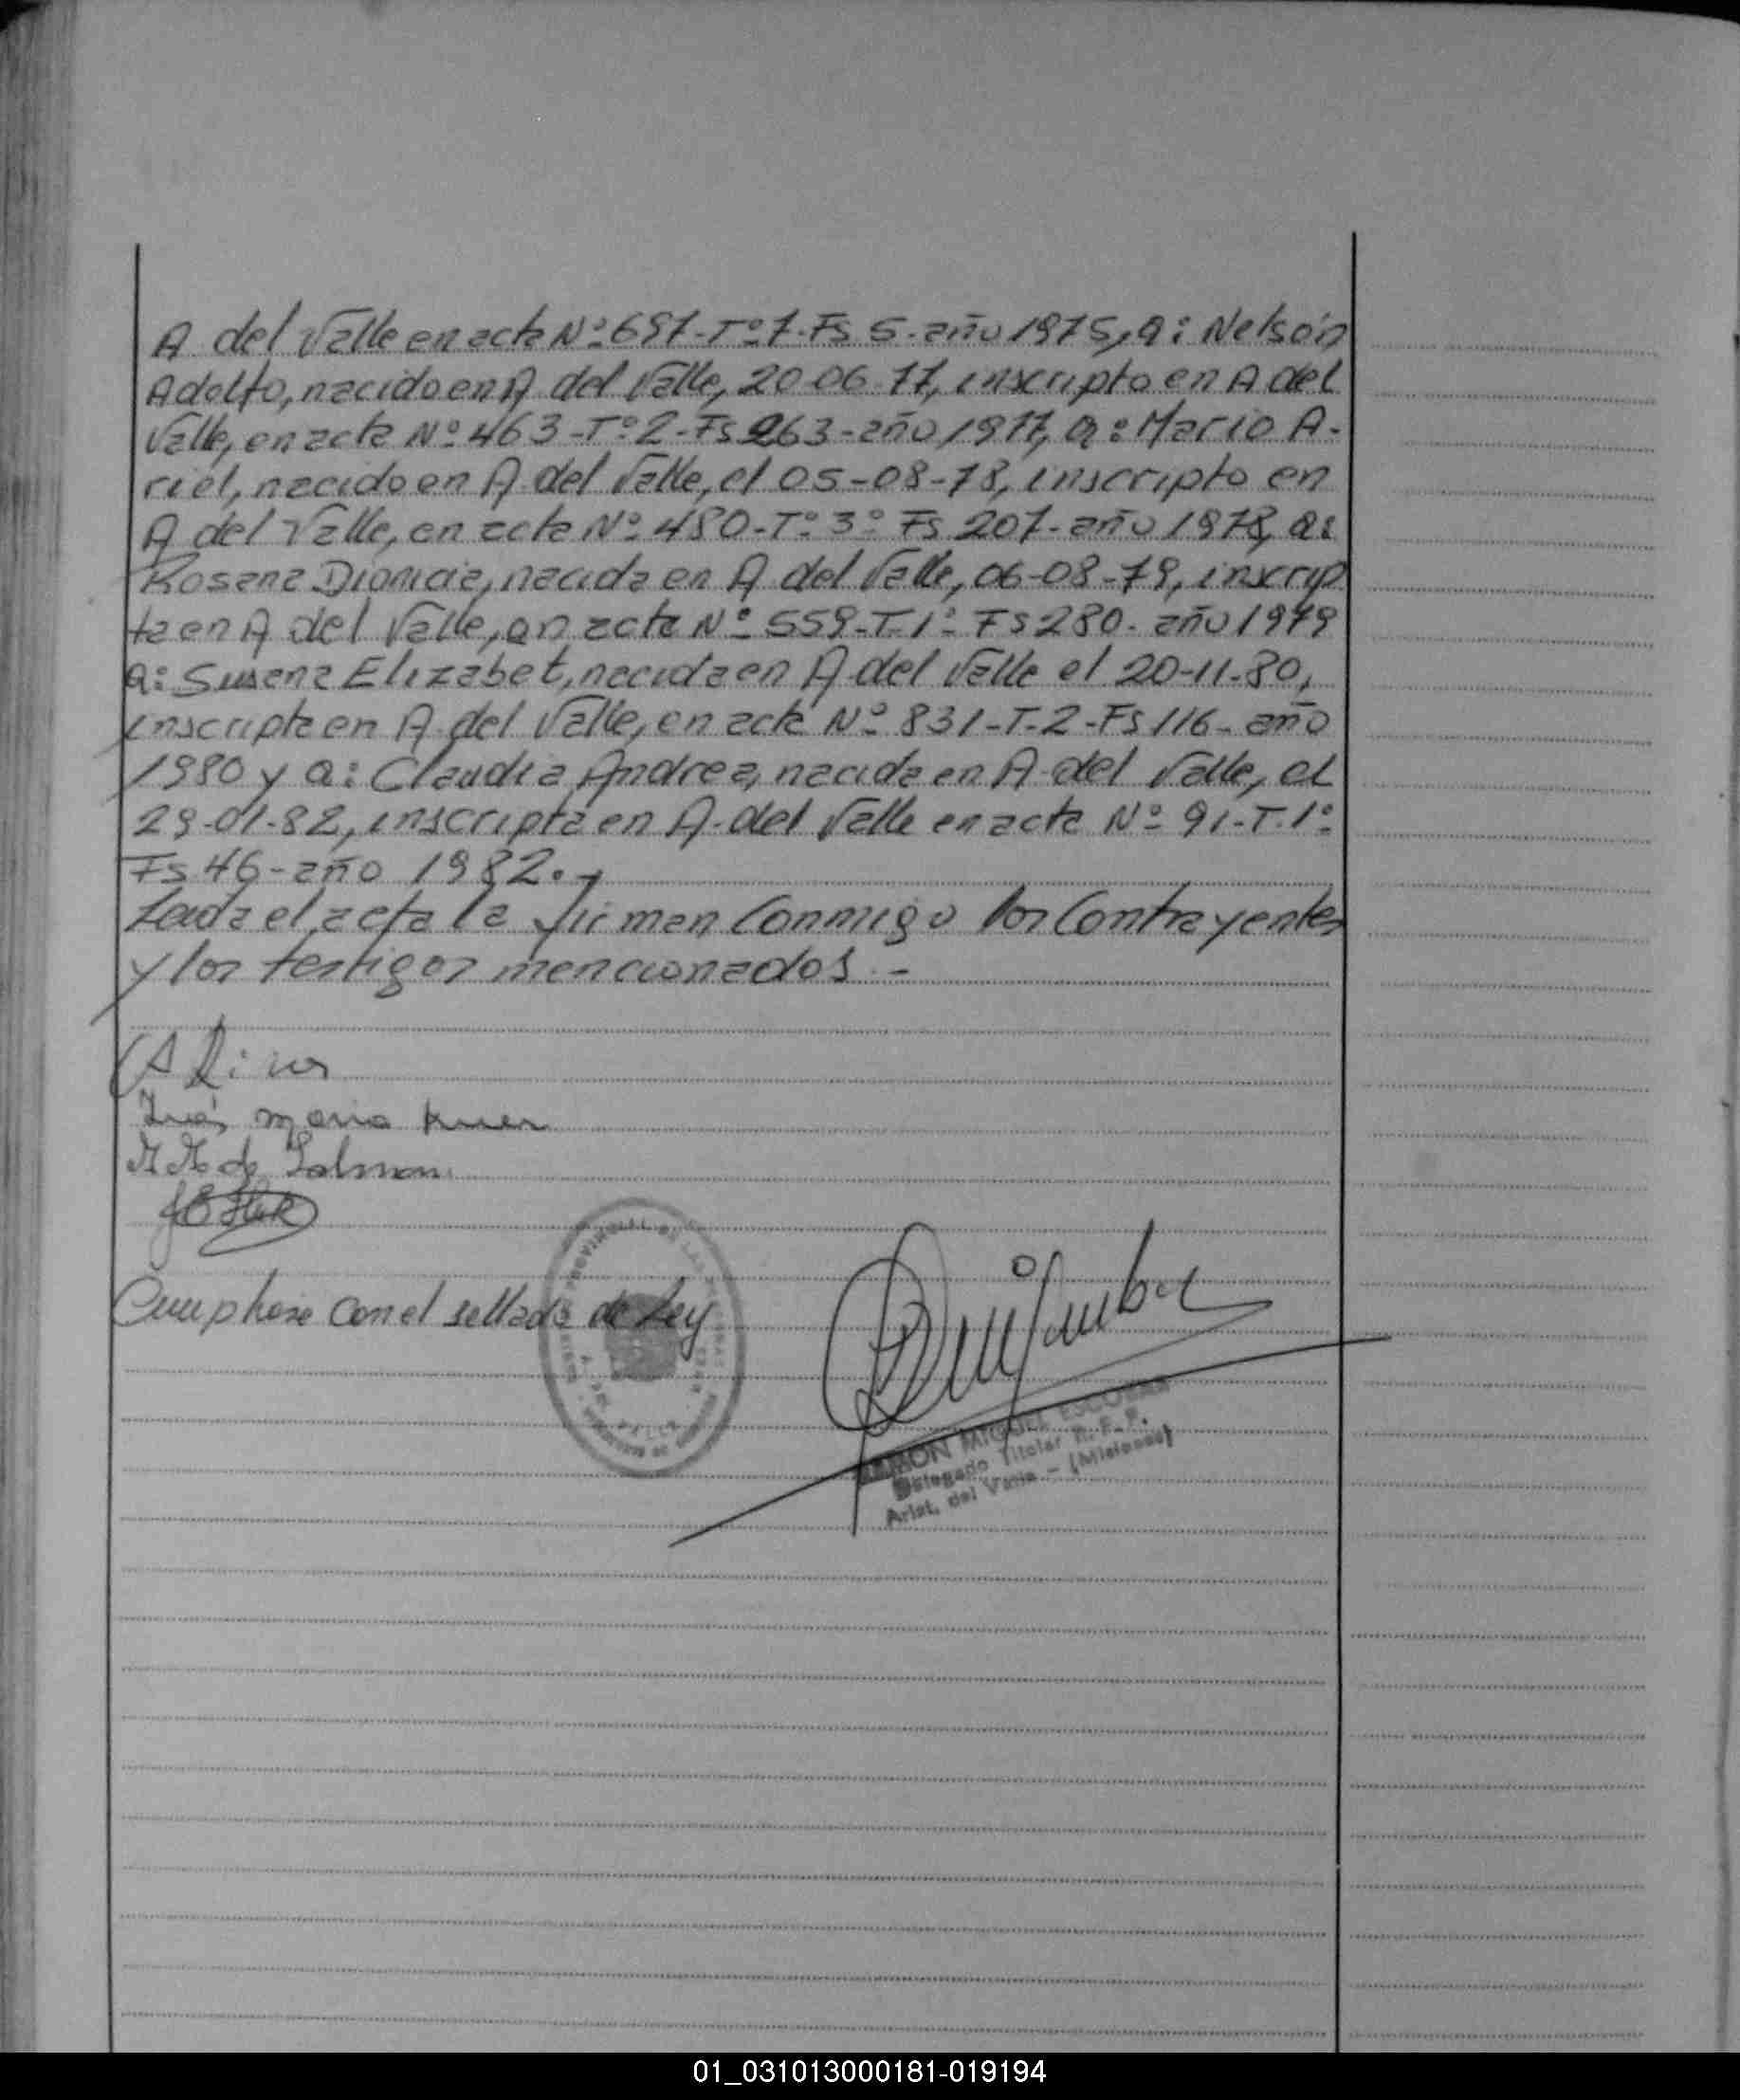 A del Valle en acta Nº 697-Tº 7-Fs 5-año 1975, a: Nelsón
Adolfo, nacido en A del Valle, 20-06-77, inscripto en A del
Valle, en acta Nº 463-Tº 2-Fs 263-año 1977, a: Mario A-
riel, nacido en A del Valle, el 05-08-78, inscripto en
A del Valle, en acta Nº 480-Tº 3º Fs 207-año 1978, a:
Rosana Dionicia, nacida en A del Valle, 06-08-79, inscrip
ta en A del Valle, en acta Nº 559-T-1º Fs 280-año 1979
a: Susana Elizabet, nacida en A del Valle el 20-11-80,
inscripta en A. del Valle, en acta Nº 831-T-2-Fs 116-año
1980 y a: Claudia Andrea, nacida en A del Valle, el
29-01-82, inscripta en A. del Valle en acta Nº 91-T.1º
Fs 46-año 1982.-
Leída el acta la firman conmigo los Contrayentes
y los testigos mencionados.-
Inés maria
M M de
Cumplase con el sellado de Ley
RAMON MIGUEL ESCOBAR
Delegado Titular R. E. P.
Arist. del Valle - (Misiones)
01_031013000181-019194